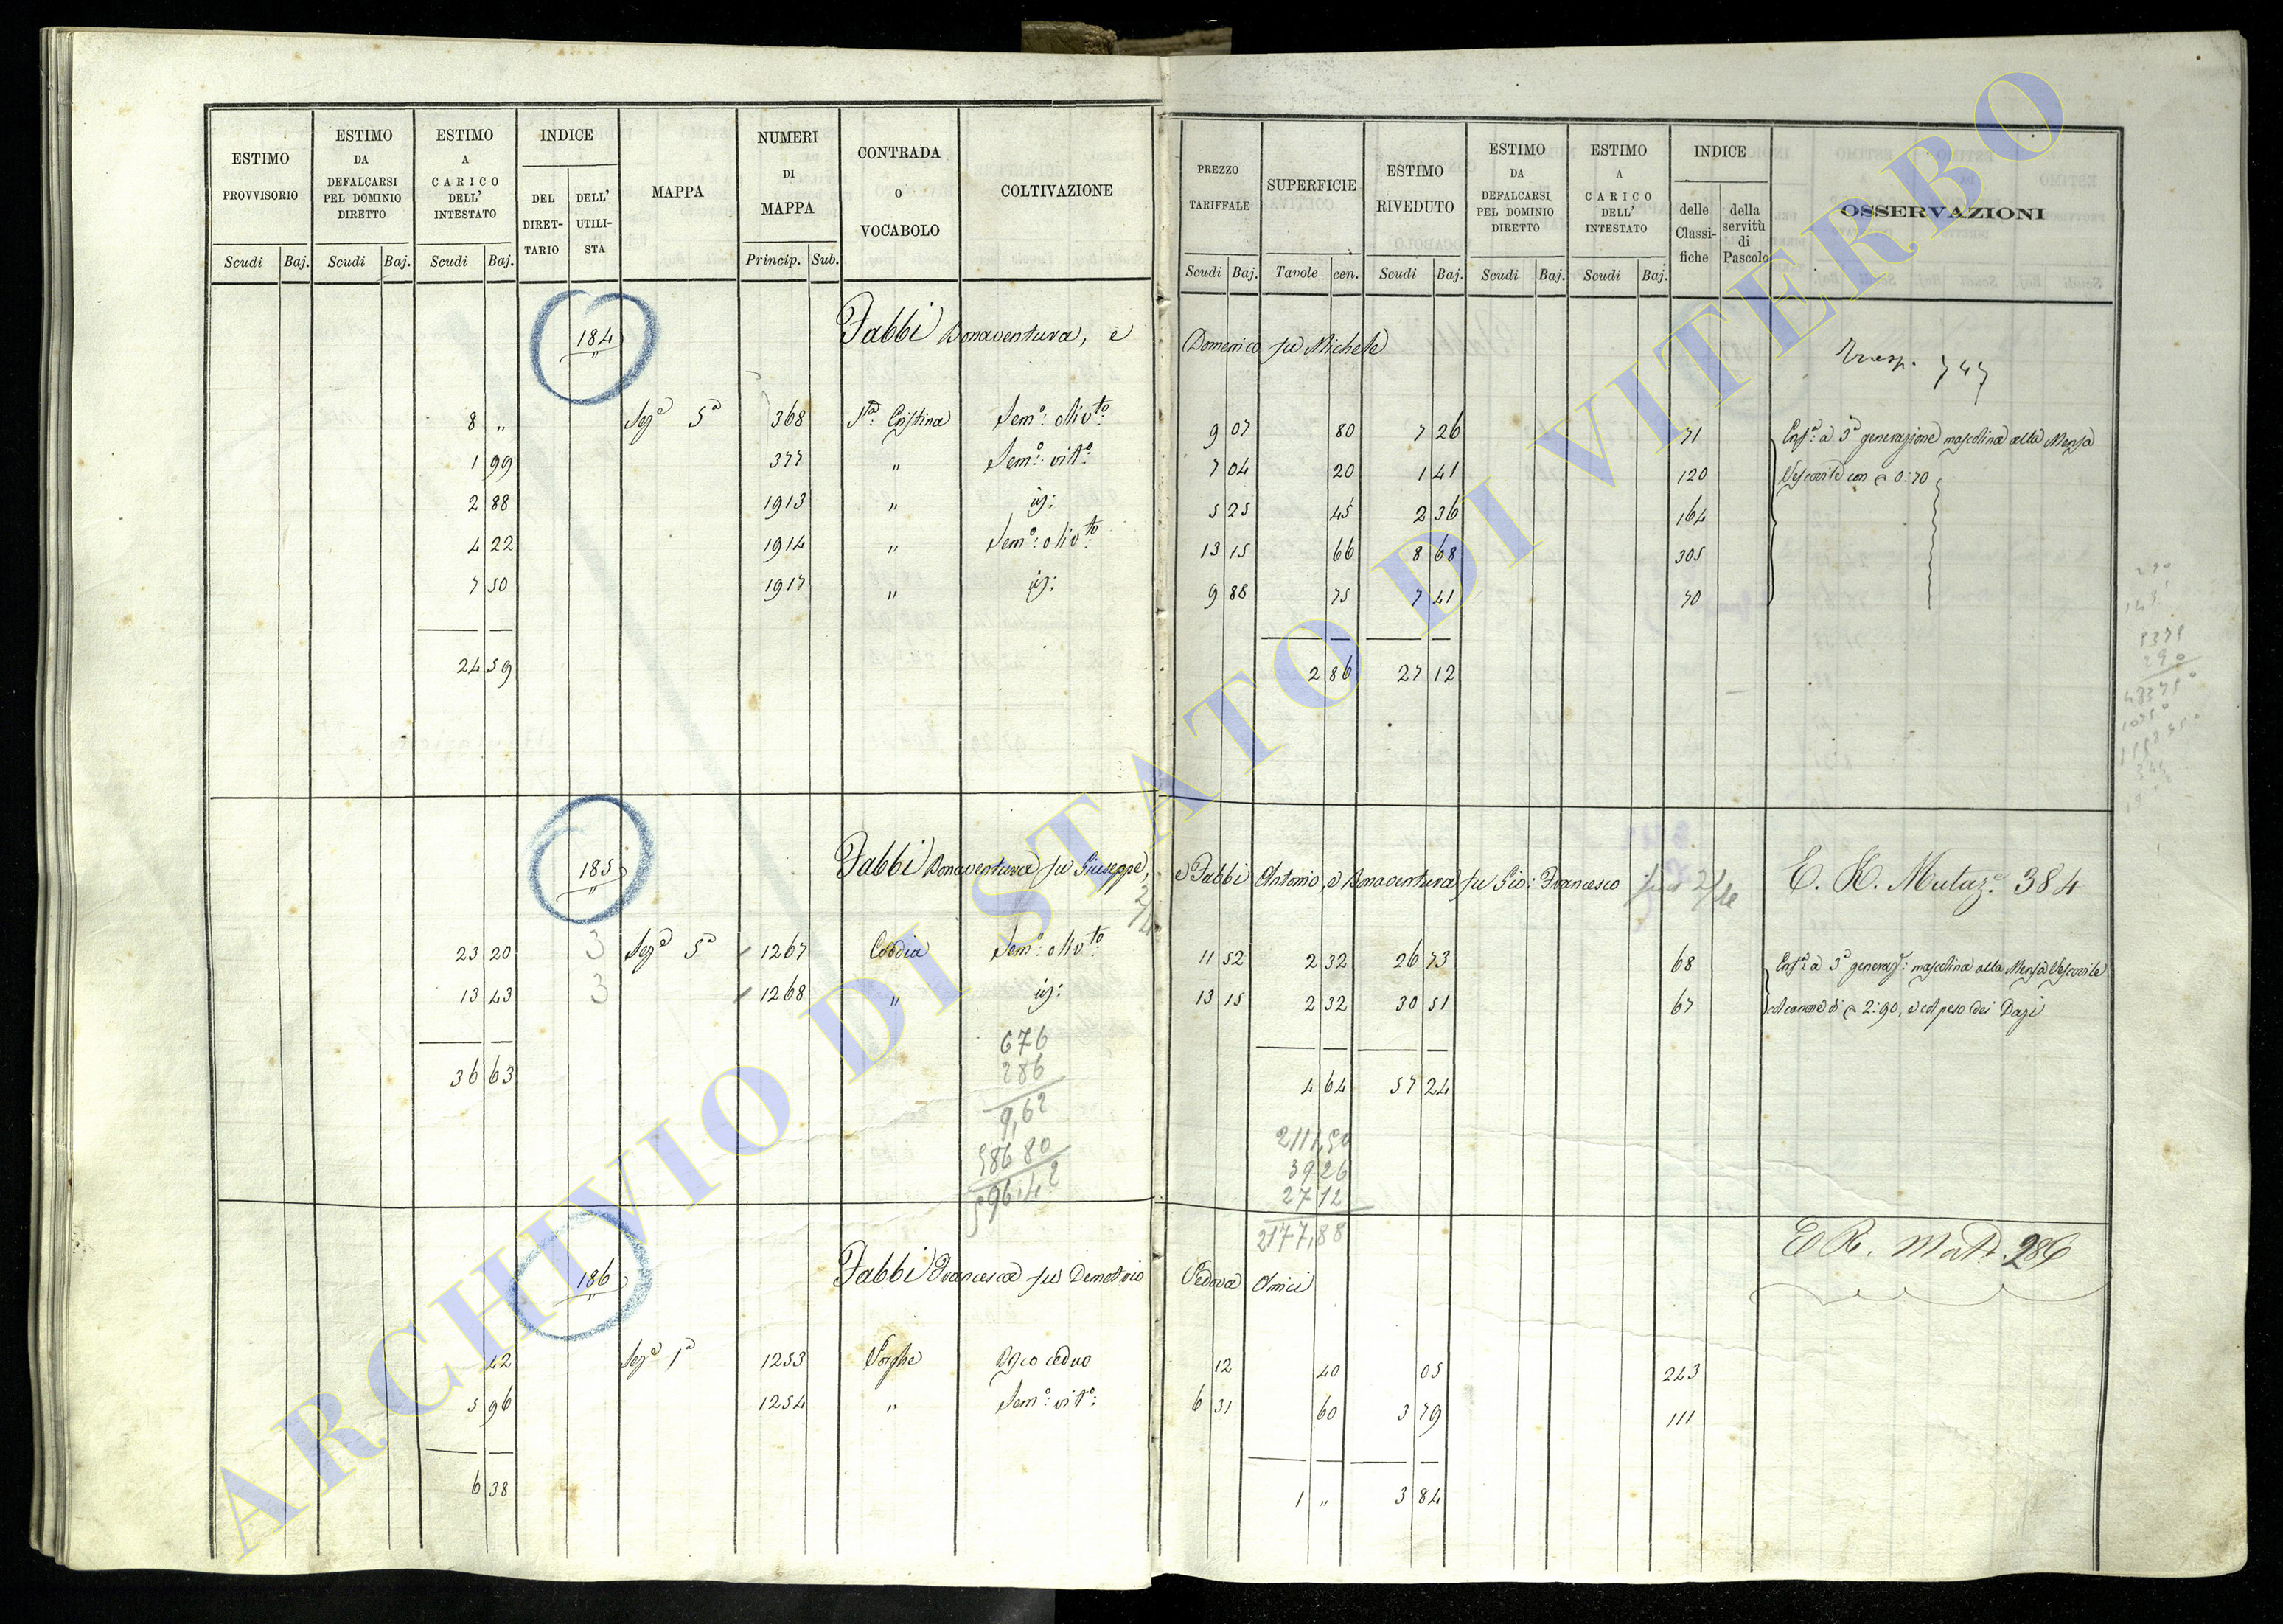 ESTIMO PROVVISORIO
Scudi Baj.
ESTIMO DA DEFALCARSI PEL DOMINIO DIRETTO
Scudi Baj.
ESTIMO A CARICO DELL' INTESTATO
Scudi Baj.
INDICE
DEL DIRET-TARIO
DELL' UTILI-STA
MAPPA
NUMERI DI MAPPA
Princip. Sub.
CONTRADA o VOCABOLO
COLTIVAZIONE
PREZZO TARIFFALE
Scudi Baj.
SUPERFICIE
Tavole cen.
ESTIMO RIVEDUTO
Scudi Baj.
ESTIMO DA DEFALCARSI PEL DOMINIO DIRETTO
Scudi Baj.
ESTIMO A CARICO DELL' INTESTATO
Scudi Baj.
INDICE
delle Classi-fiche
della servitù di Pascolo
OSSERVAZIONI
184 Fabbi Bonaventura, e Domenico fu Michele 747
8 " Sez.e 5a 368 S.ta Cristina Sem.o oliv.to 9 07 80 7 26 71 Enf.a a 3a generazione mascolina alla Mensa
1 99 377 " Sem.o vit.o 7 04 20 1 41 120 Vescovile con 0:70
2 88 1913 " id: 5 25 45 2 36 164
4 22 1914 " Sem.o oliv.to 13 15 66 8 68 305
7 50 1917 " id: 9 88 75 7 41 70
24 59 2 86 27 12
185 Fabbi Bonaventura fu Giuseppe, e Fabbi Antonio, e Bonaventura fu Gio: Francesco E. R. Mutaz.e 384
23 20 3 Sez.e 5a 1267 Coddia Sem.o oliv.to 11 52 2 32 26 73 68 Enf.a a 3a generaz.e mascolina alla Mensa Vescovile
13 43 3 1268 " id: 13 15 2 32 30 51 67 col canone di 2:90, e col peso dei Dazi
36 63 4 64 57 24
676
286
9,62
58680
596,42
2111,50
3926
2712
2177,88
186 Fabbi Francesca fu Demetrio Vedova Amici E R. Matt. 286
42 Sez.e 1a 1253 Sorghe Bosco ceduo 12 40 05 243
5 96 1254 " Sem.o vit.o 6 31 60 3 79 111
6 38 1 " 3 84
ARCHIVIO DI STATO DI VITERBO